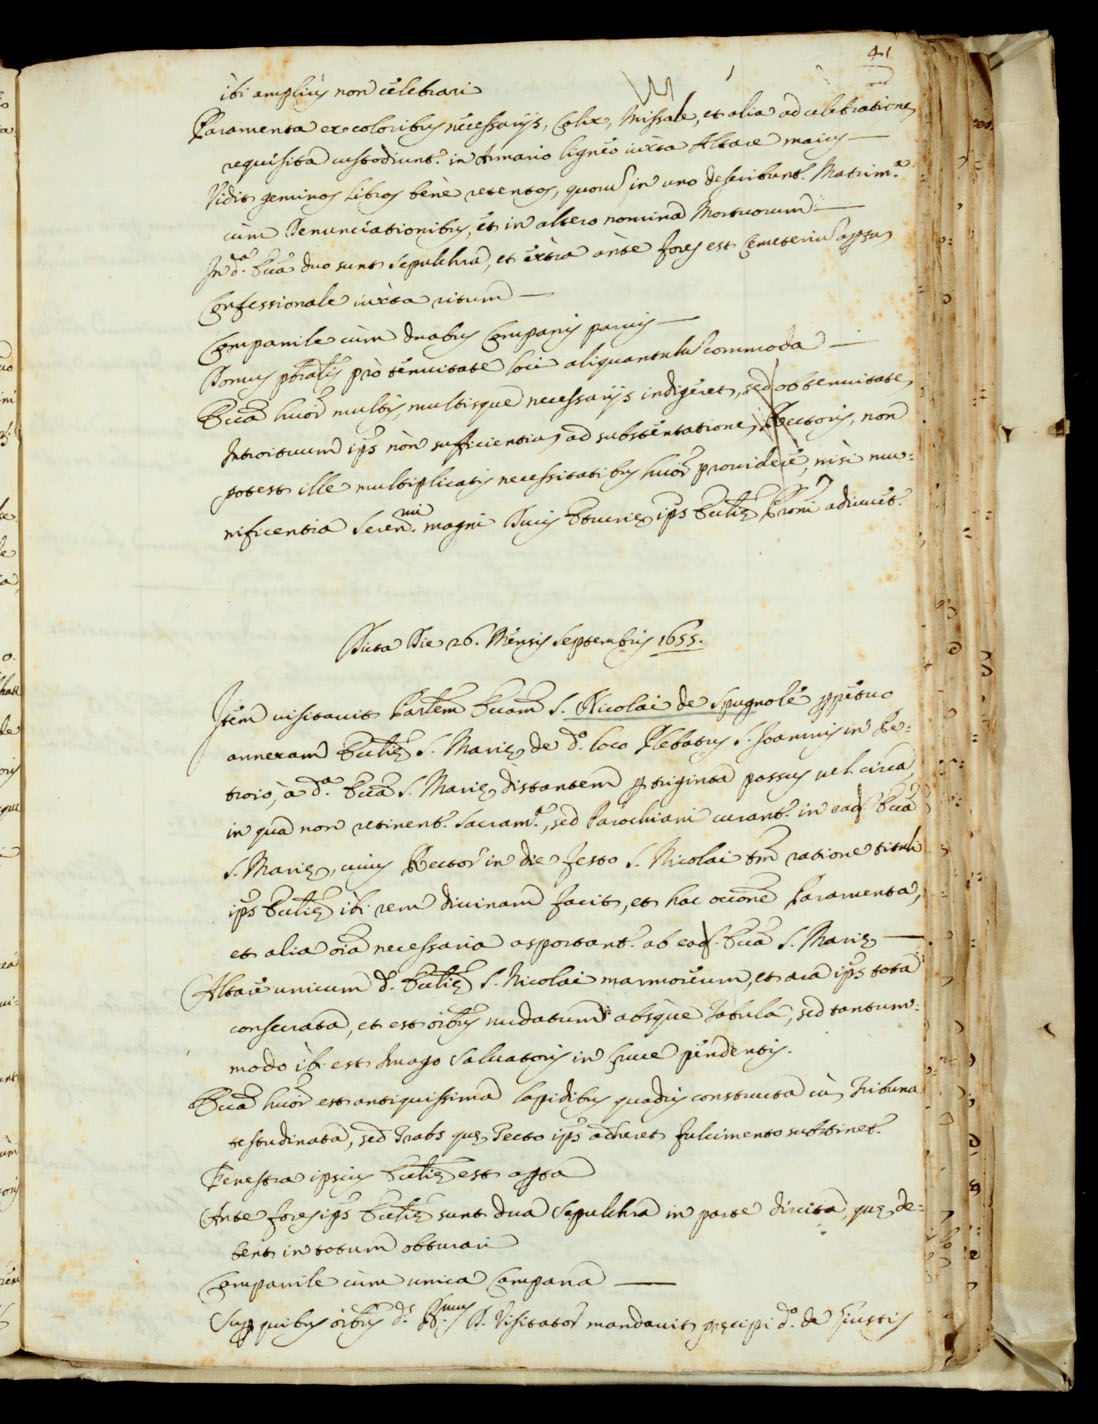 41
ibi amplius non celebrari
Paramenta ex coloribus necessarijs, Calix, Missale, et alia ad celebratione
requisita custodiunt.r in Armario ligneo iuxta Altare maius —
Vidit geminos Libros bene retentos, quorũ in uno describunt.r Matrim.a
cum Denunciationibus, et in altero nomina Mortuorum —
In d.a Ecc̃a duo sunt Sepulchra, et extra ante fores est Cemeteriũ
Confessionale iuxta ritum —
Campanile cum duabus Campanis paruis —
Domus pro tenuitate loci aliquantulũ commoda —
Ecc̃a multis multisque necessarijs indigeret, sed ob tenuitate
Introituum ips non sufficientiũ ad substentatione Rectoris, non
potest ille multiplicatis necessitatibus prouidere, nisi mu=
nificentia Seren.mi magni Ducis Etruriæ ips Eccl̃iæ adiuuet.r
Dicta Die 26. Mensis Septembris 1655.
Item visitauit Ecc̃am S. Nicolai de Spugnole ppetuo
annexam Eccl̃iæ S. Mariæ de d.o loco Plebatus S. Joannis in Pe=
troio, a d.a Ecc̃a S. Mariæ distantem p triginta passus uel circa
in qua non retinent.r Sacram.a, sed Parochiani curant.r in ead. Ecc̃a
S. Mariæ, cuius Rector in die festo S. Nicolai tm̃ ratione tituli
ips Eccl̃iæ ibi rem diuinam facit, et hac occ̃one Paramenta,
et alia oĩa necessaria asportant.r ab ead. Ecc̃a S. Mariæ —
Altare unicum d. Eccl̃iæ S. Nicolai marmoreum, et ara ips tota
consecrata, et est oĩbus nudatum absque Tabula, sed tantum=
modo ibi est Imago Saluatoris in Cruce pendentis.
Ecc̃a est antiquissima lapidibus quadris constructa cũ Tribuna
testudinata, sed Trabs quæ Tecto ips adheret fulcimento sustinet.r
Fenestra ipsius Eccl̃iæ est apta
Ante fores ips Eccl̃iæ sunt dua Sepulchra in parte diruta, quæ de=
bent in totum obturari
Campanile cum unica Campana —
Sup quibus oĩbus d.s D. Visitator mandauit præcipi d.o de Giustis